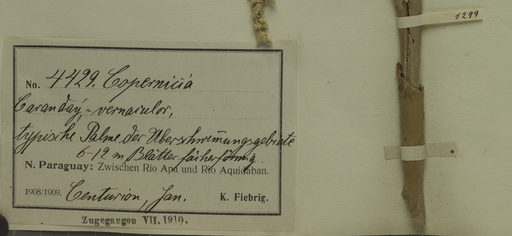 1299
No. 4429. Copernicia
Caranday, - vernaculor,
typische Palme der Überschwemmungsgebiete
6-12 m Blätter fächerförmig
N. Paraguay: Zwischen Rio Apa und Rio Aquidaban.
1908/1909. Centurion, Jan. K. Fiebrig.
Zugegangen VII. 1910.